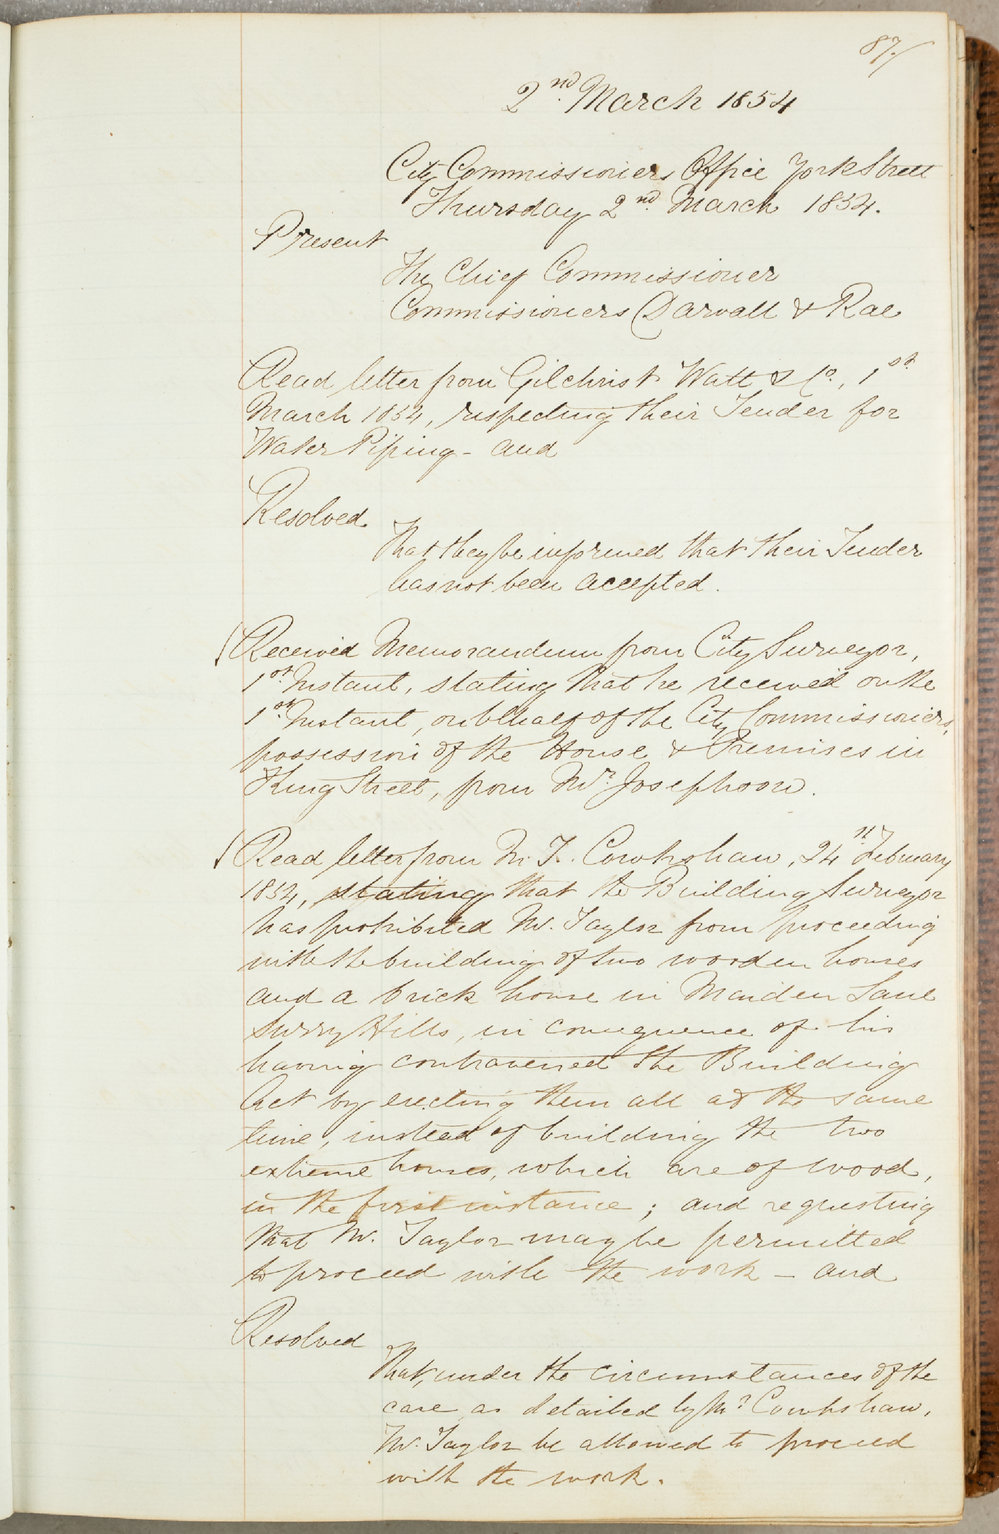 87/
2nd March 1854
City Commissioners Office York Street
Thursday 2nd March 1854.
Present
The Chief Commissioner
Commissioners Darvall & Rae
Read letter from Gilchrist Watt & Co., 1st
March 1854, respecting their Tender for
Water Piping - and
Resolved
That they be informed that their Tender
has not been accepted.
Received Memorandum from City Surveyor,
1st Instant, stating that he received on the
1st Instant, on behalf of the City Commissioners,
possession of the House & Premises in
King Street, from Mr. Josephson.
Read letter from M. T. Cowlishaw, 24th February
1854, stating that the Building Surveyor
has prohibited Mr. Taylor from proceeding
with the building of two wooden houses
and a brick house in Maiden Lane
Surry Hills, in consequence of his
having contravened the Building
Act by erecting them all at the same
time, instead of building the two
extreme houses, which are of wood,
in the first instance; and requesting
that Mr. Taylor may be permitted
to proceed with the work - and
Resolved
That, under the circumstances of the
case as detailed by Mr. Cowlishaw,
Mr. Taylor be allowed to proceed
with the work.